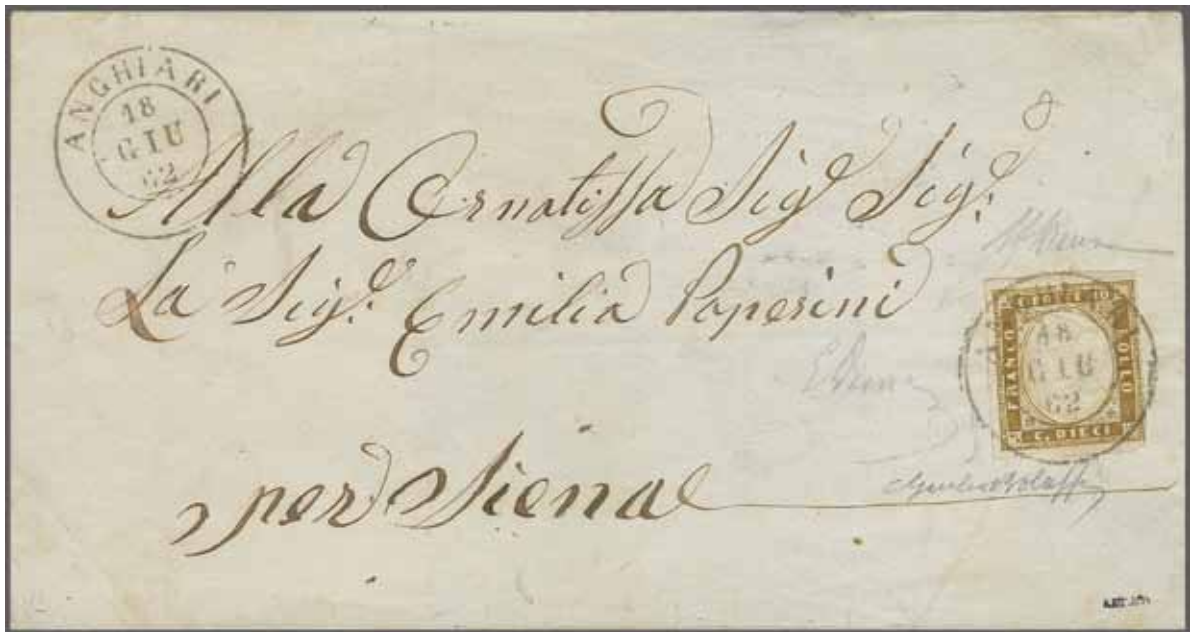 ANGHIARI
18
GIU
62
Alla Ornatissa Sigª Sigª:
La Sigª: Emilia Paperini
per Siena
FRANCO
BOLLO
C. DIECI
18
GIU
62